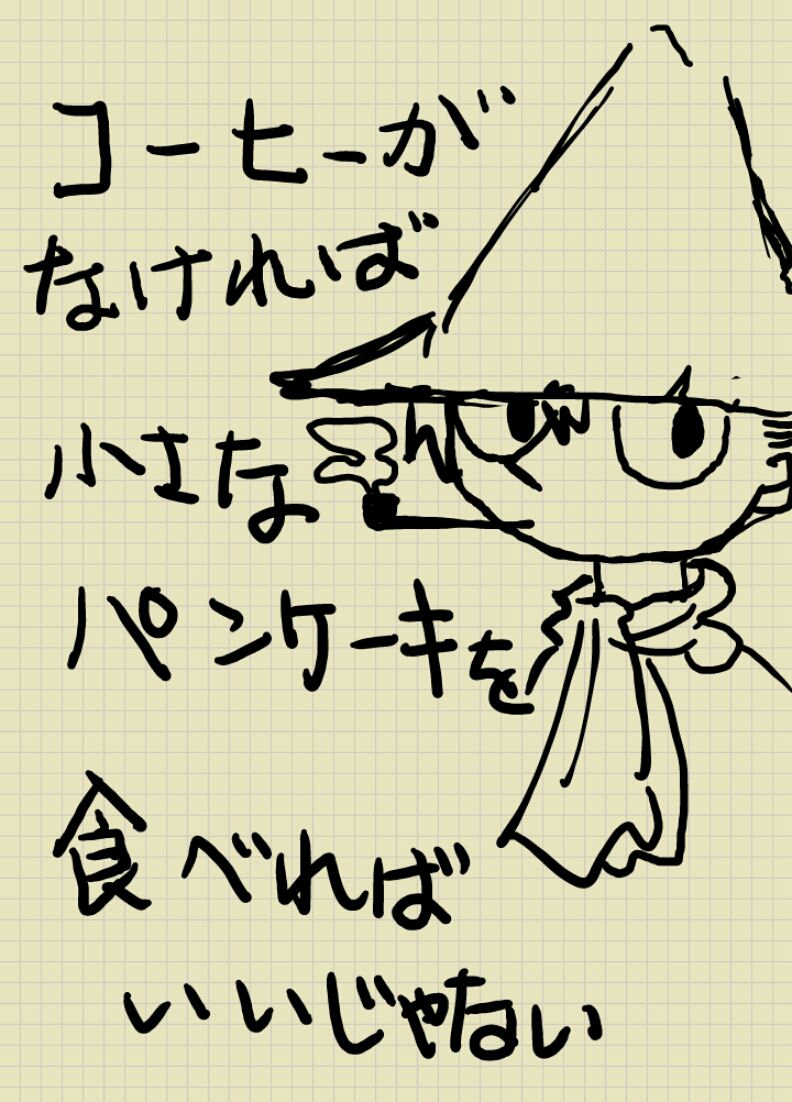 コーヒーが
なければ
小さな
パンケーキを
食べれば
いいじゃない